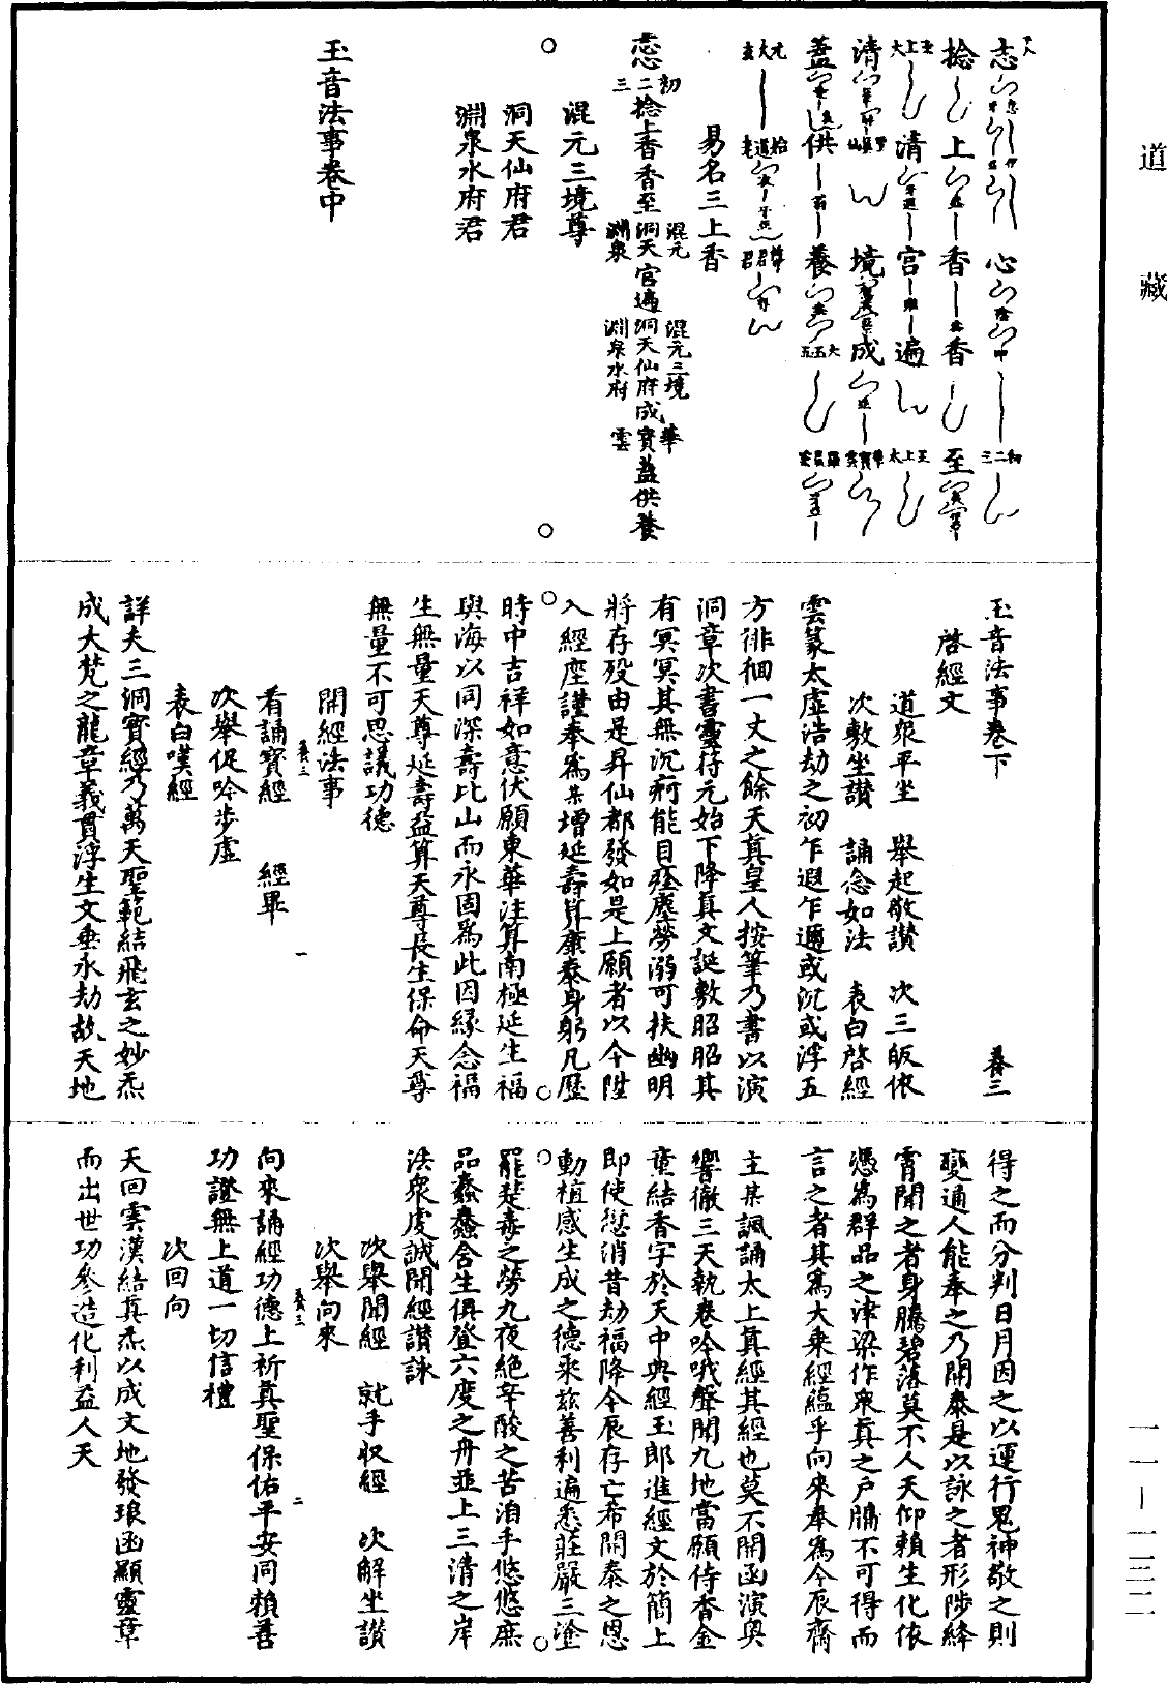 道藏
志心
捻上香香至
清宮遍
請境成
蓋供養
易名三上香
三二初
捻上香香至 混元 洞天 淵泉 宮遍 混元三境 洞天仙府 淵泉水府 成 華 寶 雲 蓋供養
混元三境尊
洞天仙府君
淵泉水府君
玉音法事卷中
玉音法事卷下 養三
啓經文
道衆平坐 舉起敬讃 次三皈依
次敷坐讃 誦念如法 表白啓經
雲篆太虛浩劫之初乍遐乍邇或沉或浮五
方徘徊一丈之餘天真皇人按筆乃書以演
洞章次書靈符元始下降真文誕敷昭昭其
有冥冥其無沉痾能自痊塵勞溺可扶幽明
將存殁由是昇仙都發如是上願者以今陞
入經座謹奉爲某增延壽算康泰身躬凡歷
時中吉祥如意伏願東華注算南極延生福
與海以同深壽比山而永固爲此因緣念福
生無量天尊延壽益算天尊長生保命天尊
無量不可思議功德
開經法事
養三 一
看誦寶經 經畢
次舉促吟步虛
表白嘆經
詳夫三洞寶經乃萬天聖範結飛玄之妙炁
成大梵之龍章義貫浮生文垂永劫故天地
得之而分判日月因之以運行鬼神敬之則
變通人能奉之乃開泰是以詠之者形陟絳
霄聞之者身騰碧落莫不人天仰賴生化依
憑爲群品之津梁作衆真之戶牖不可得而
言之者其爲大乘經蘊乎向來奉爲今辰齋
主某諷誦太上真經其經也莫不開函演奧
響徹三天執卷吟哦聲聞九地當願侍香金
童結香字於天中典經玉郎進經文於簡上
即使愆消昔劫福降今辰存亡希開泰之恩
動植感生成之德乘茲善利遍悉莊嚴三塗
罷楚毒之勞九夜絕辛酸之苦洎乎悠悠庶
品蠢蠢含生俱登六度之舟並上三清之岸
法衆虔誠開經讃詠
次舉開經 就手収經 次解坐讃
次舉向來
養三 二
向來誦經功德上祈真聖保佑平安同賴善
功證無上道一切信禮
次回向
天回雲漢結真炁以成文地發琅函顯靈章
而出世功參造化利益人天
一一-一三二